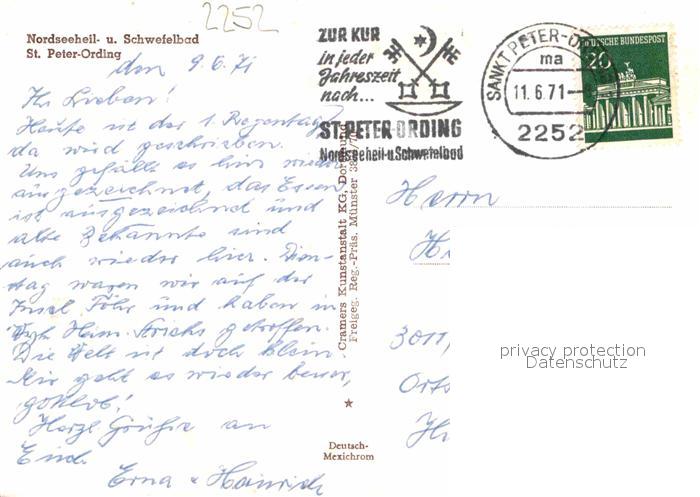 2252
Nordseeheil- u. Schwefelbad
St. Peter-Ording
den 9.6.71
Ihr Lieben!
Heute ist der 1. Regentag,
da wird geschrieben.
Uns gefällt es hier wieder
ausgezeichnet, das Essen
ist ausgezeichnet und
alte Bekannte sind
auch wieder hier. Diens-
tag waren wir auf der
Insel Föhr und haben in
Wyk Herrn getroffen.
Die Welt ist doch klein.
Mir geht es wieder besser,
gottlob!
Herzl. Grüße an
Euch
Erna + Heinrich
ZUR KUR
in jeder
Jahreszeit
nach...
ST. PETER-ORDING
Nordseeheil-u.Schwefelbad
SANKT PETER-O
ma
11.6.71
2252
DEUTSCHE BUNDESPOST
20
Cramers Kunstanstalt KG, Dortmund
Freigeg. Reg.-Präs. Münster
Deutsch-
Mexichrom
Herrn
3011,
Orts
privacy protection
Datenschutz